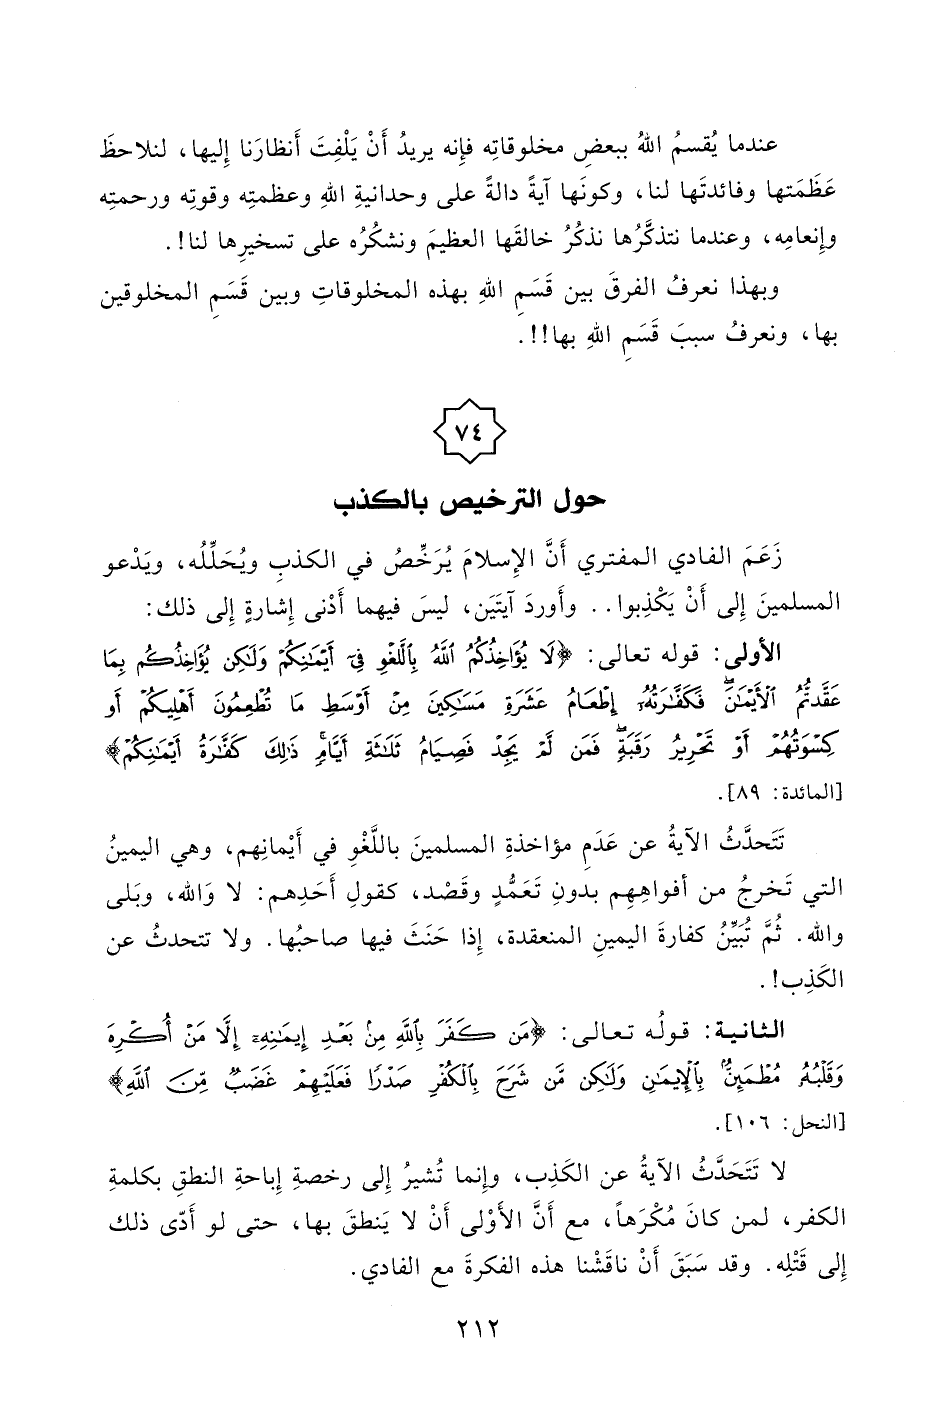 عندما يُقسمُ اللهُ ببعضِ مخلوقاتِه فإنه يريدُ أَنْ يَلْفِتَ أَنظارَنا إِليها، لنلاحظَ
عَظَمَتها وفائدتَها لنا، وكونَها آيةً دالةً على وحدانيةِ اللهِ وعظمتِه وقوتِه ورحمتِه
وإِنعامِه، وعندما نتذكَّرُها نذكُرُ خالقَها العظيمَ ونشكُرُه على تسخيرِها لنا!.
وبهذا نعرفُ الفرقَ بين قَسَمِ اللهِ بهذه المخلوقاتِ وبين قَسَمِ المخلوقين
بها، ونعرفُ سببَ قَسَمِ اللهِ بها!!.
٧٤
حول الترخيص بالكذب
زَعَمَ الفادي المفتري أَنَّ الإِسلامَ يُرَخِّصُ في الكذبِ ويُحَلِّلُه، ويَدْعو
المسلمينَ إِلى أَنْ يَكْذِبوا.. وأَوردَ آيتَين، ليسَ فيهما أَدْنى إِشارةٍ إِلى ذلك:
الأولى: قوله تعالى: ﴿لَا يُؤَاخِذُكُمُ ٱللَّهُ بِٱللَّغْوِ فِىٓ أَيْمَٰنِكُمْ وَلَٰكِن يُؤَاخِذُكُم بِمَا
عَقَّدتُّمُ ٱلْأَيْمَٰنَۖ فَكَفَّٰرَتُهُۥٓ إِطْعَامُ عَشَرَةِ مَسَٰكِينَ مِنْ أَوْسَطِ مَا تُطْعِمُونَ أَهْلِيكُمْ أَوْ
كِسْوَتُهُمْ أَوْ تَحْرِيرُ رَقَبَةٍۖ فَمَن لَّمْ يَجِدْ فَصِيَامُ ثَلَٰثَةِ أَيَّامٍۚ ذَٰلِكَ كَفَّٰرَةُ أَيْمَٰنِكُمْ﴾
[المائدة: ٨٩].
تَتَحدَّثُ الآيةُ عن عَدَمِ مؤاخذةِ المسلمينَ باللَّغْوِ في أَيْمانِهم، وهي اليمينُ
التي تَخرجُ من أفواهِهِم بدونِ تَعَمُّدٍ وقَصْد، كقولِ أَحَدِهم: لا وَالله، وبَلى
والله. ثُمَّ تُبَيِّنُ كفارةَ اليمينِ المنعقدة، إِذا حَنَثَ فيها صاحبُها. ولا تتحدثُ عن
الكَذِب!.
الثانية: قولُه تعالى: ﴿مَن كَفَرَ بِٱللَّهِ مِنۢ بَعْدِ إِيمَٰنِهِۦٓ إِلَّا مَنْ أُكْرِهَ
وَقَلْبُهُۥ مُطْمَئِنٌّۢ بِٱلْإِيمَٰنِ وَلَٰكِن مَّن شَرَحَ بِٱلْكُفْرِ صَدْرًا فَعَلَيْهِمْ غَضَبٌ مِّنَ ٱللَّهِ﴾
[النحل: ١٠٦].
لا تَتَحَدَّثُ الآيةُ عن الكَذِب، وإِنما تُشيرُ إِلى رخصةِ إِباحةِ النطقِ بكلمةِ
الكفر، لمن كانَ مُكْرَهاً، مع أَنَّ الأَوْلى أَنْ لا يَنطقَ بها، حتى لو أَدّى ذلك
إِلى قَتْلِه. وقد سَبَقَ أَنْ ناقَشْنا هذه الفكرةَ مع الفادي.
٢١٢